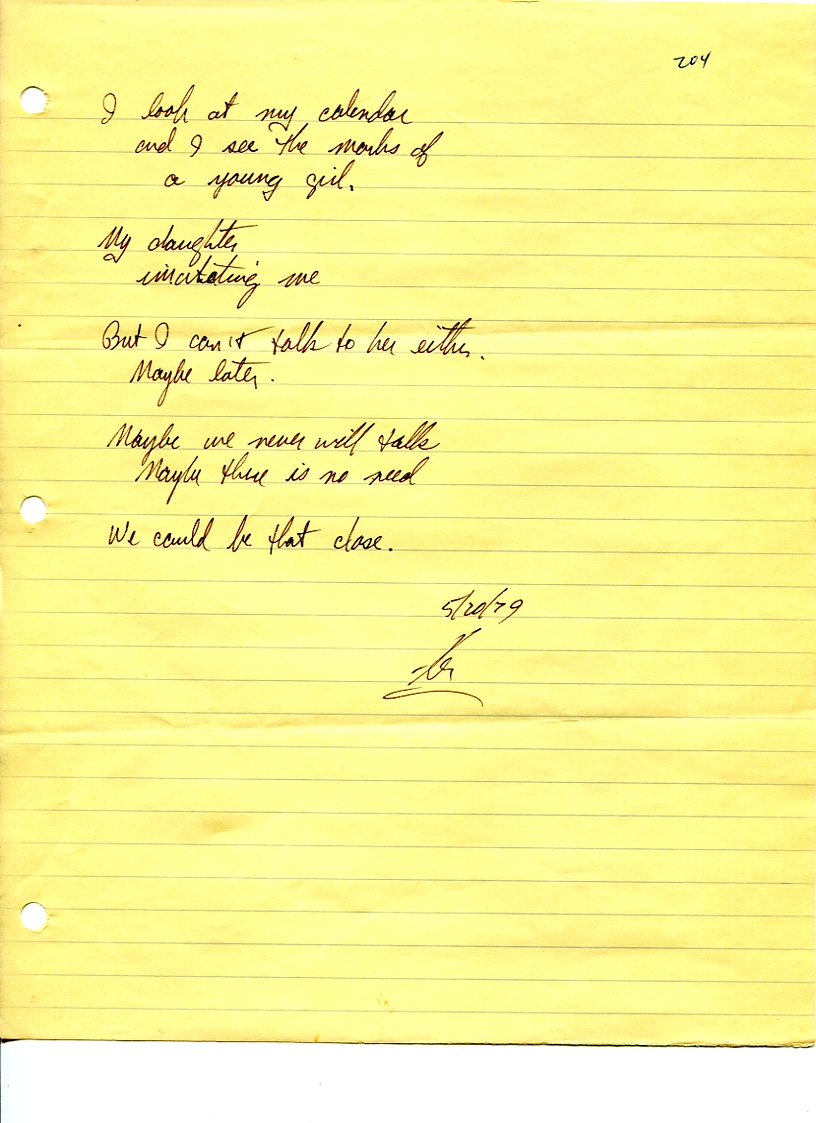 204
I look at my calendar
and I see the marks of
a young girl.
My daughter
imitating me
But I can't talk to her either.
Maybe later.
Maybe we never will talk
Maybe there is no need
We could be that close.
5/20/79